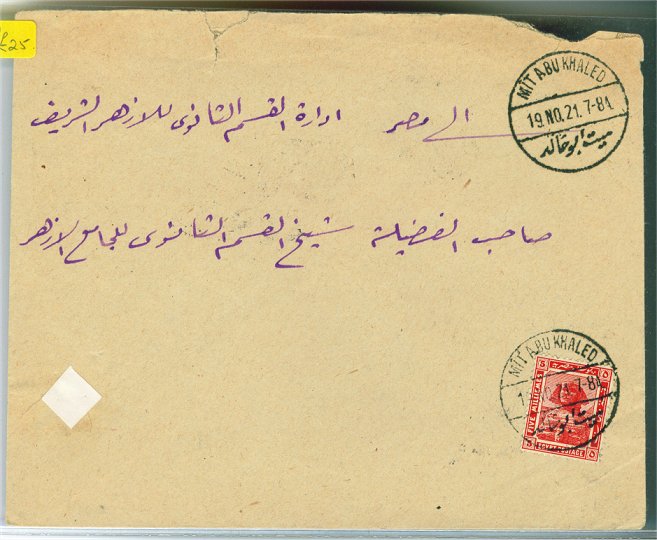 £25.
MIT ABU KHALED
19.NO.21.7-8
ميت ابو خالد
الى مصر ادارة القسم الثانوى للازهر الشريف
صاحب الفضيلة شيخ القسم الثانوى للجامع الازهر
MIT ABU KHALED
NO.21.7-8
ميت ابو خالد
5 ٥
FIVE MILLIEMES
5 ٥
EGYPT POSTAGE